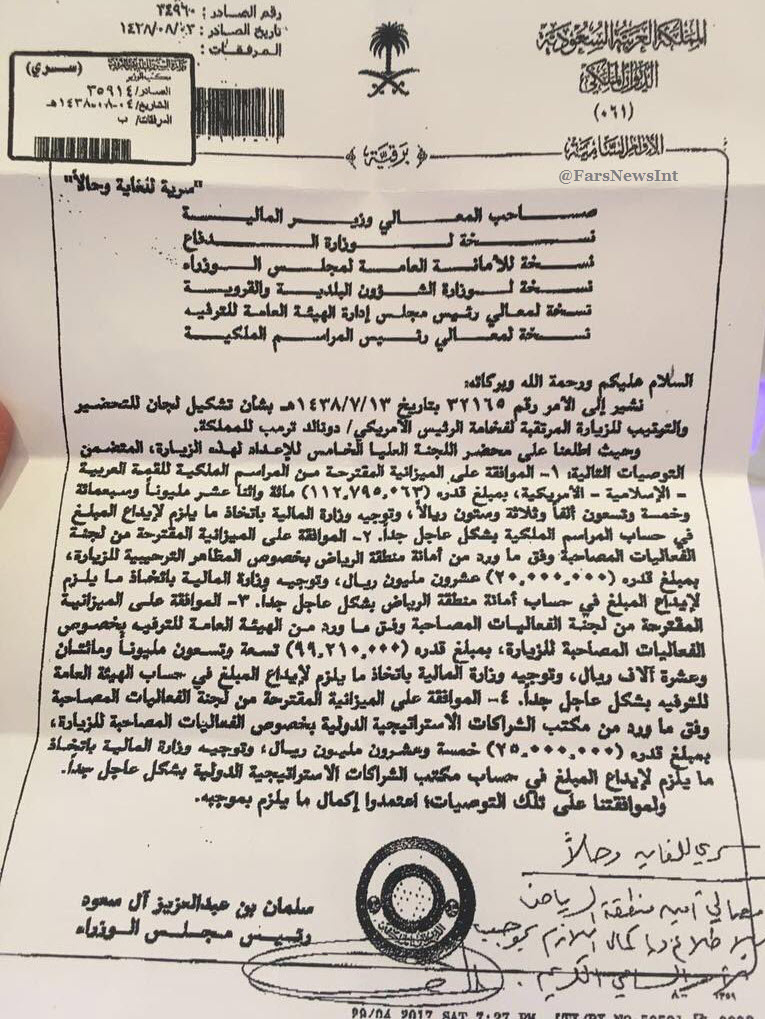 المملكة العربية السعودية
الديوان الملكي
(٠٦١)
الأوامر السامية
برقية
رقم الصادر : ٣٤٩٦٠
تاريخ الصادر : ١٤٣٨/٠٨/٠٣
المرفقات :
(سري)
مكتب الوزير
الصادر/ ٣٥٩١٤
التاريخ/ ٠٤-٠٨-١٤٣٨هـ
المرفقات/ ب
@FarsNewsInt
"سرية للغاية وحالاً"
صاحب المعالي وزير المالية
نسخة لوزارة الدفاع
نسخة للأمانة العامة لمجلس الوزراء
نسخة لوزارة الشؤون البلدية والقروية
نسخة لمعالي رئيس مجلس إدارة الهيئة العامة للترفيه
نسخة لمعالي رئيس المراسم الملكية
السلام عليكم ورحمة الله وبركاته:
نشير إلى الأمر رقم ٣٢١٦٥ بتاريخ ١٤٣٨/٧/١٣هـ بشأن تشكيل لجان للتحضير
والترتيب للزيارة المرتقبة لفخامة الرئيس الأمريكي/ دونالد ترمب للمملكة.
وحيث اطلعنا على محضر اللجنة العليا الخامس للإعداد لهذه الزيارة، المتضمن
التوصيات التالية: ١- الموافقة على الميزانية المقترحة من المراسم الملكية للقمة العربية
- الإسلامية - الأمريكية، بمبلغ قدره (١١٢,٧٩٥,٠٦٣) مائة واثنا عشر مليوناً وسبعمائة
وخمسة وتسعون ألفاً وثلاثة وستون ريالاً، وتوجيه وزارة المالية باتخاذ ما يلزم لإيداع المبلغ
في حساب المراسم الملكية بشكل عاجل جداً. ٢- الموافقة على الميزانية المقترحة من لجنة
الفعاليات المصاحبة وفق ما ورد من أمانة منطقة الرياض بخصوص المظاهر الترحيبية للزيارة،
بمبلغ قدره (٢٠,٠٠٠,٠٠٠) عشرون مليون ريال، وتوجيه وزارة المالية باتخاذ ما يلزم
لإيداع المبلغ في حساب أمانة منطقة الرياض بشكل عاجل جداً. ٣- الموافقة على الميزانية
المقترحة من لجنة الفعاليات المصاحبة وفق ما ورد من الهيئة العامة للترفيه بخصوص
الفعاليات المصاحبة للزيارة، بمبلغ قدره (٩٩,٢١٠,٠٠٠) تسعة وتسعون مليوناً ومائتان
وعشرة آلاف ريال، وتوجيه وزارة المالية باتخاذ ما يلزم لإيداع المبلغ في حساب الهيئة العامة
للترفيه بشكل عاجل جداً. ٤- الموافقة على الميزانية المقترحة من لجنة الفعاليات المصاحبة
وفق ما ورد من مكتب الشراكات الاستراتيجية الدولية بخصوص الفعاليات المصاحبة للزيارة،
بمبلغ قدره (٢٥,٠٠٠,٠٠٠) خمسة وعشرون مليون ريال، وتوجيه وزارة المالية باتخاذ
ما يلزم لإيداع المبلغ في حساب مكتب الشراكات الاستراتيجية الدولية بشكل عاجل جداً.
ولموافقتنا على تلك التوصيات؛ اعتمدوا إكمال ما يلزم بموجبه.
سلمان بن عبدالعزيز آل سعود
رئيس مجلس الوزراء
سري للغاية وحالاً
معالي أمين منطقة الرياض
للاطلاع وإكمال اللازم بموجب
الأمر السامي الكريم.
29/04 2017 SAT 7:27 PM